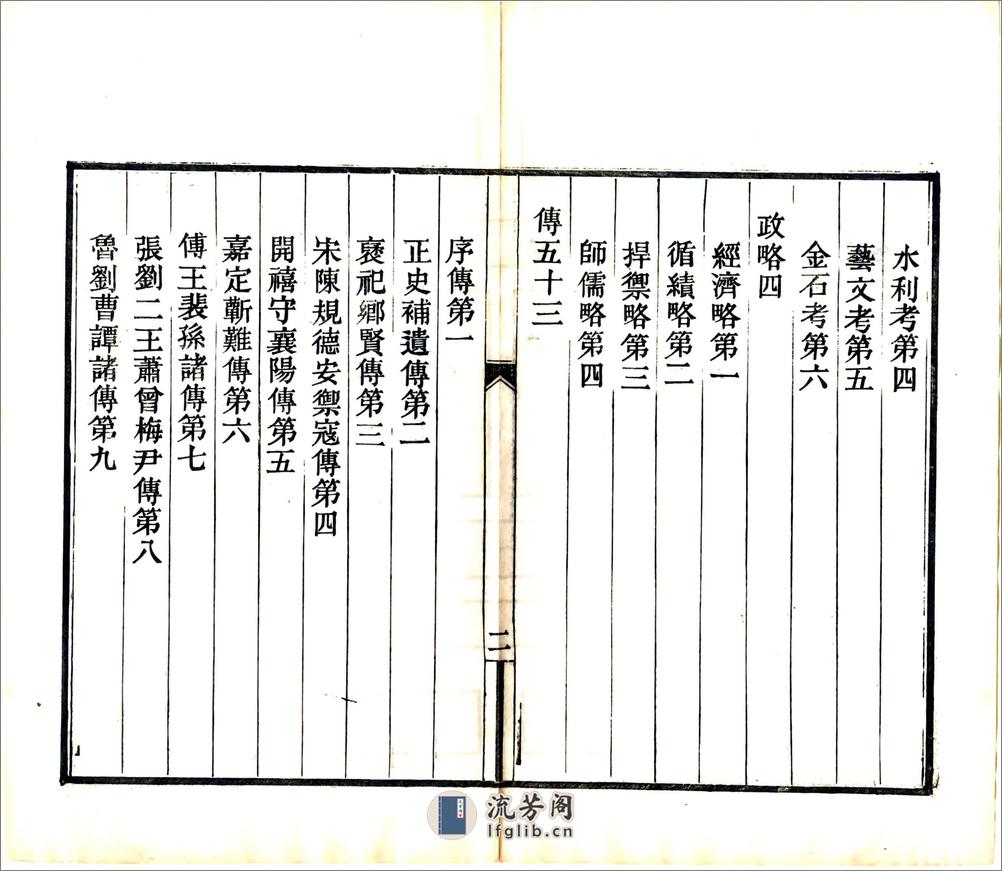 水利考第四
藝文考第五
金石考第六
政略四
經濟略第一
循績略第二
捍禦略第三
師儒略第四
傳五十三
二
序傳第一
正史補遺傳第二
襃祀鄉賢傳第三
宋陳規德安禦寇傳第四
開禧守襄陽傳第五
嘉定蘄難傳第六
傅王裴孫諸傳第七
張劉二王蕭曾梅尹傳第八
魯劉曹譚諸傳第九
流芳阁
lfglib.cn